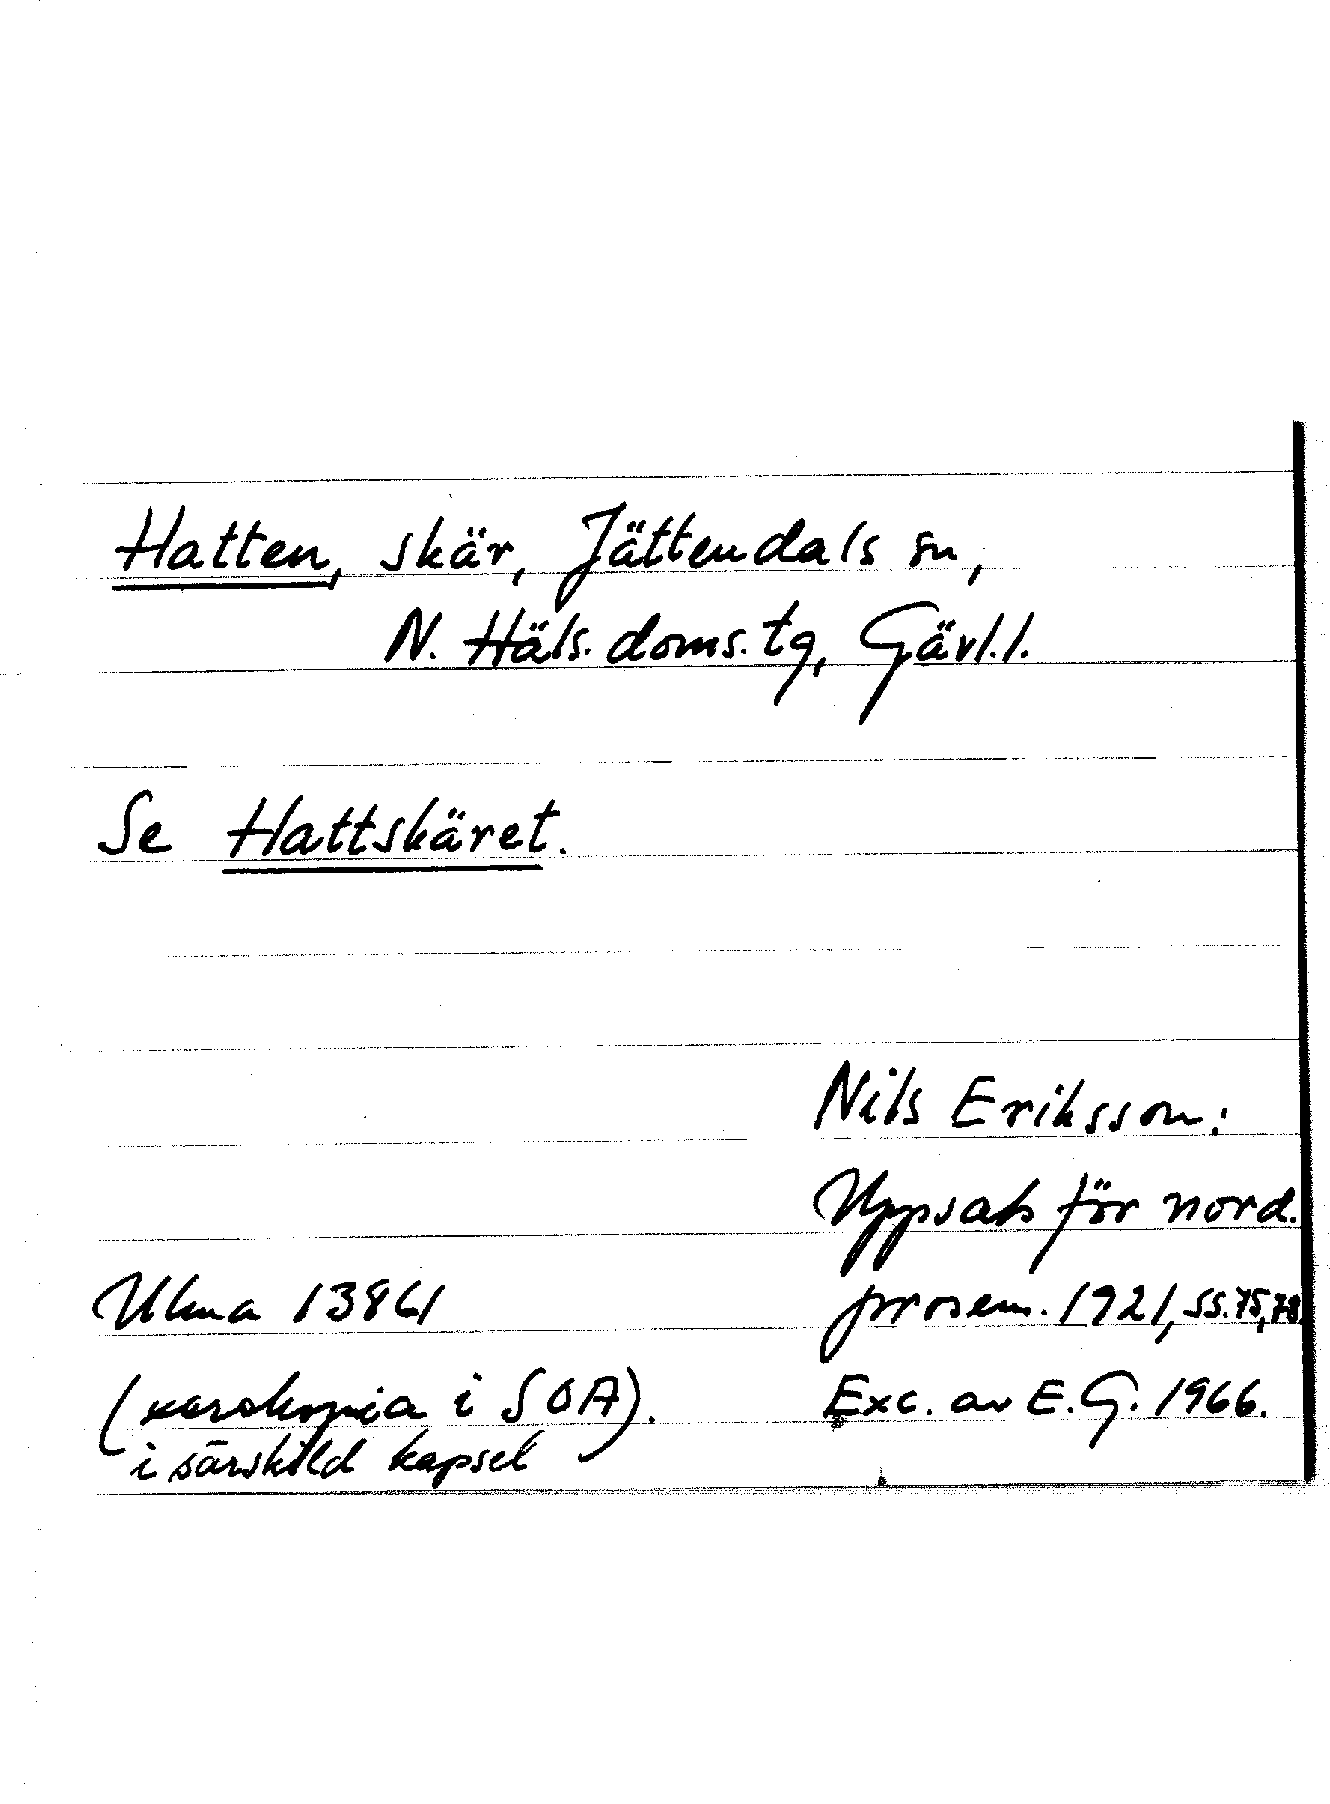 Hatten, skär, Jättendals sn,
N. Häls. doms. tg, Gävl.l.
Se Hattskäret.
Nils Eriksson:
Uppsats för nord.
Ulma 13861
prosem. 1921, ss. 75, 78.
(xeroxkopia i SOA).
Exc. av E.G. 1966.
i särskild kapsel